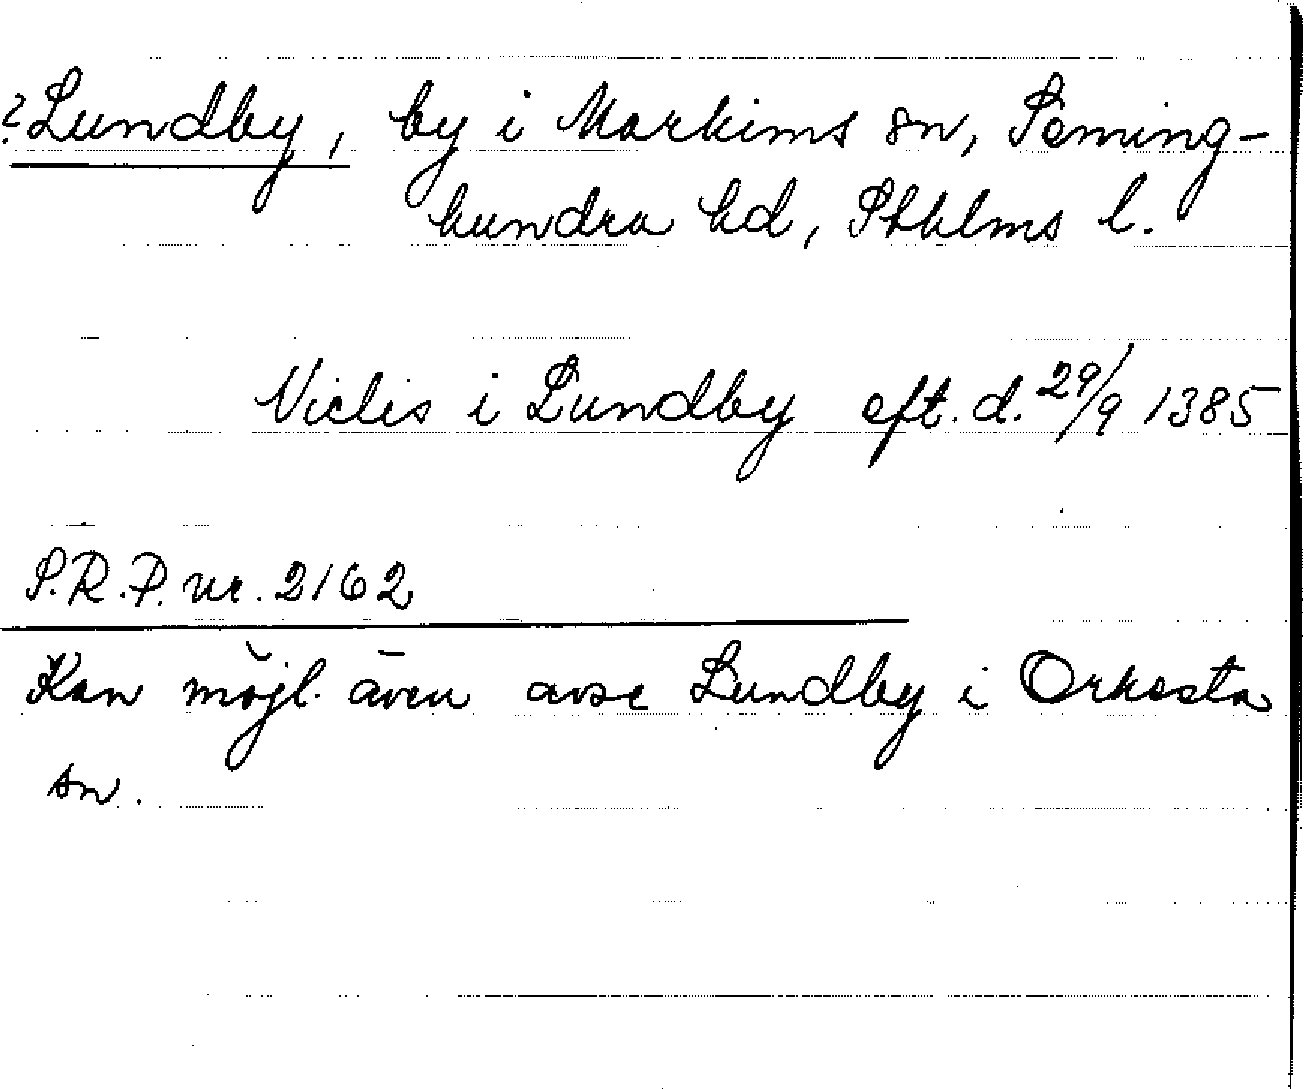 ? Lundby, by i Markims sn, Seming-
hundra hd, Sthlms l.
Niclis i Lundby eft. d. 29/9 1385
S.R.P. nr. 2162
Kan möjl. även avse Lundby i Orkesta
sn.